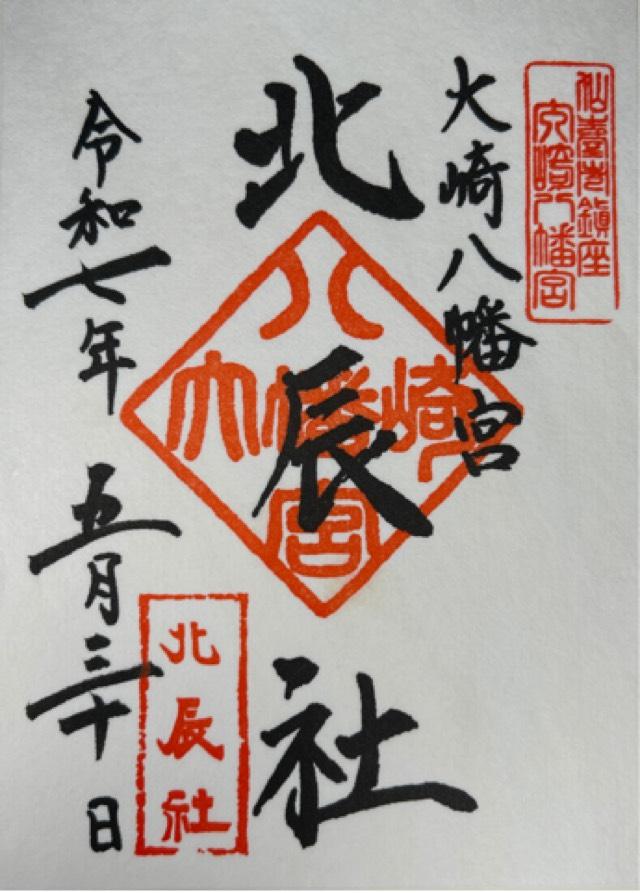 仙臺総鎮座
大崎八幡宮
大崎八幡宮
北辰社
八
大幡崎
宮
令和七年 五月三十日
北辰社